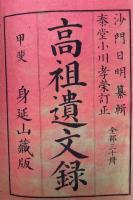 沙門日明纂輯
泰堂小川孝榮訂正
全部三十冊
高祖遺文録
甲斐
身延山藏版